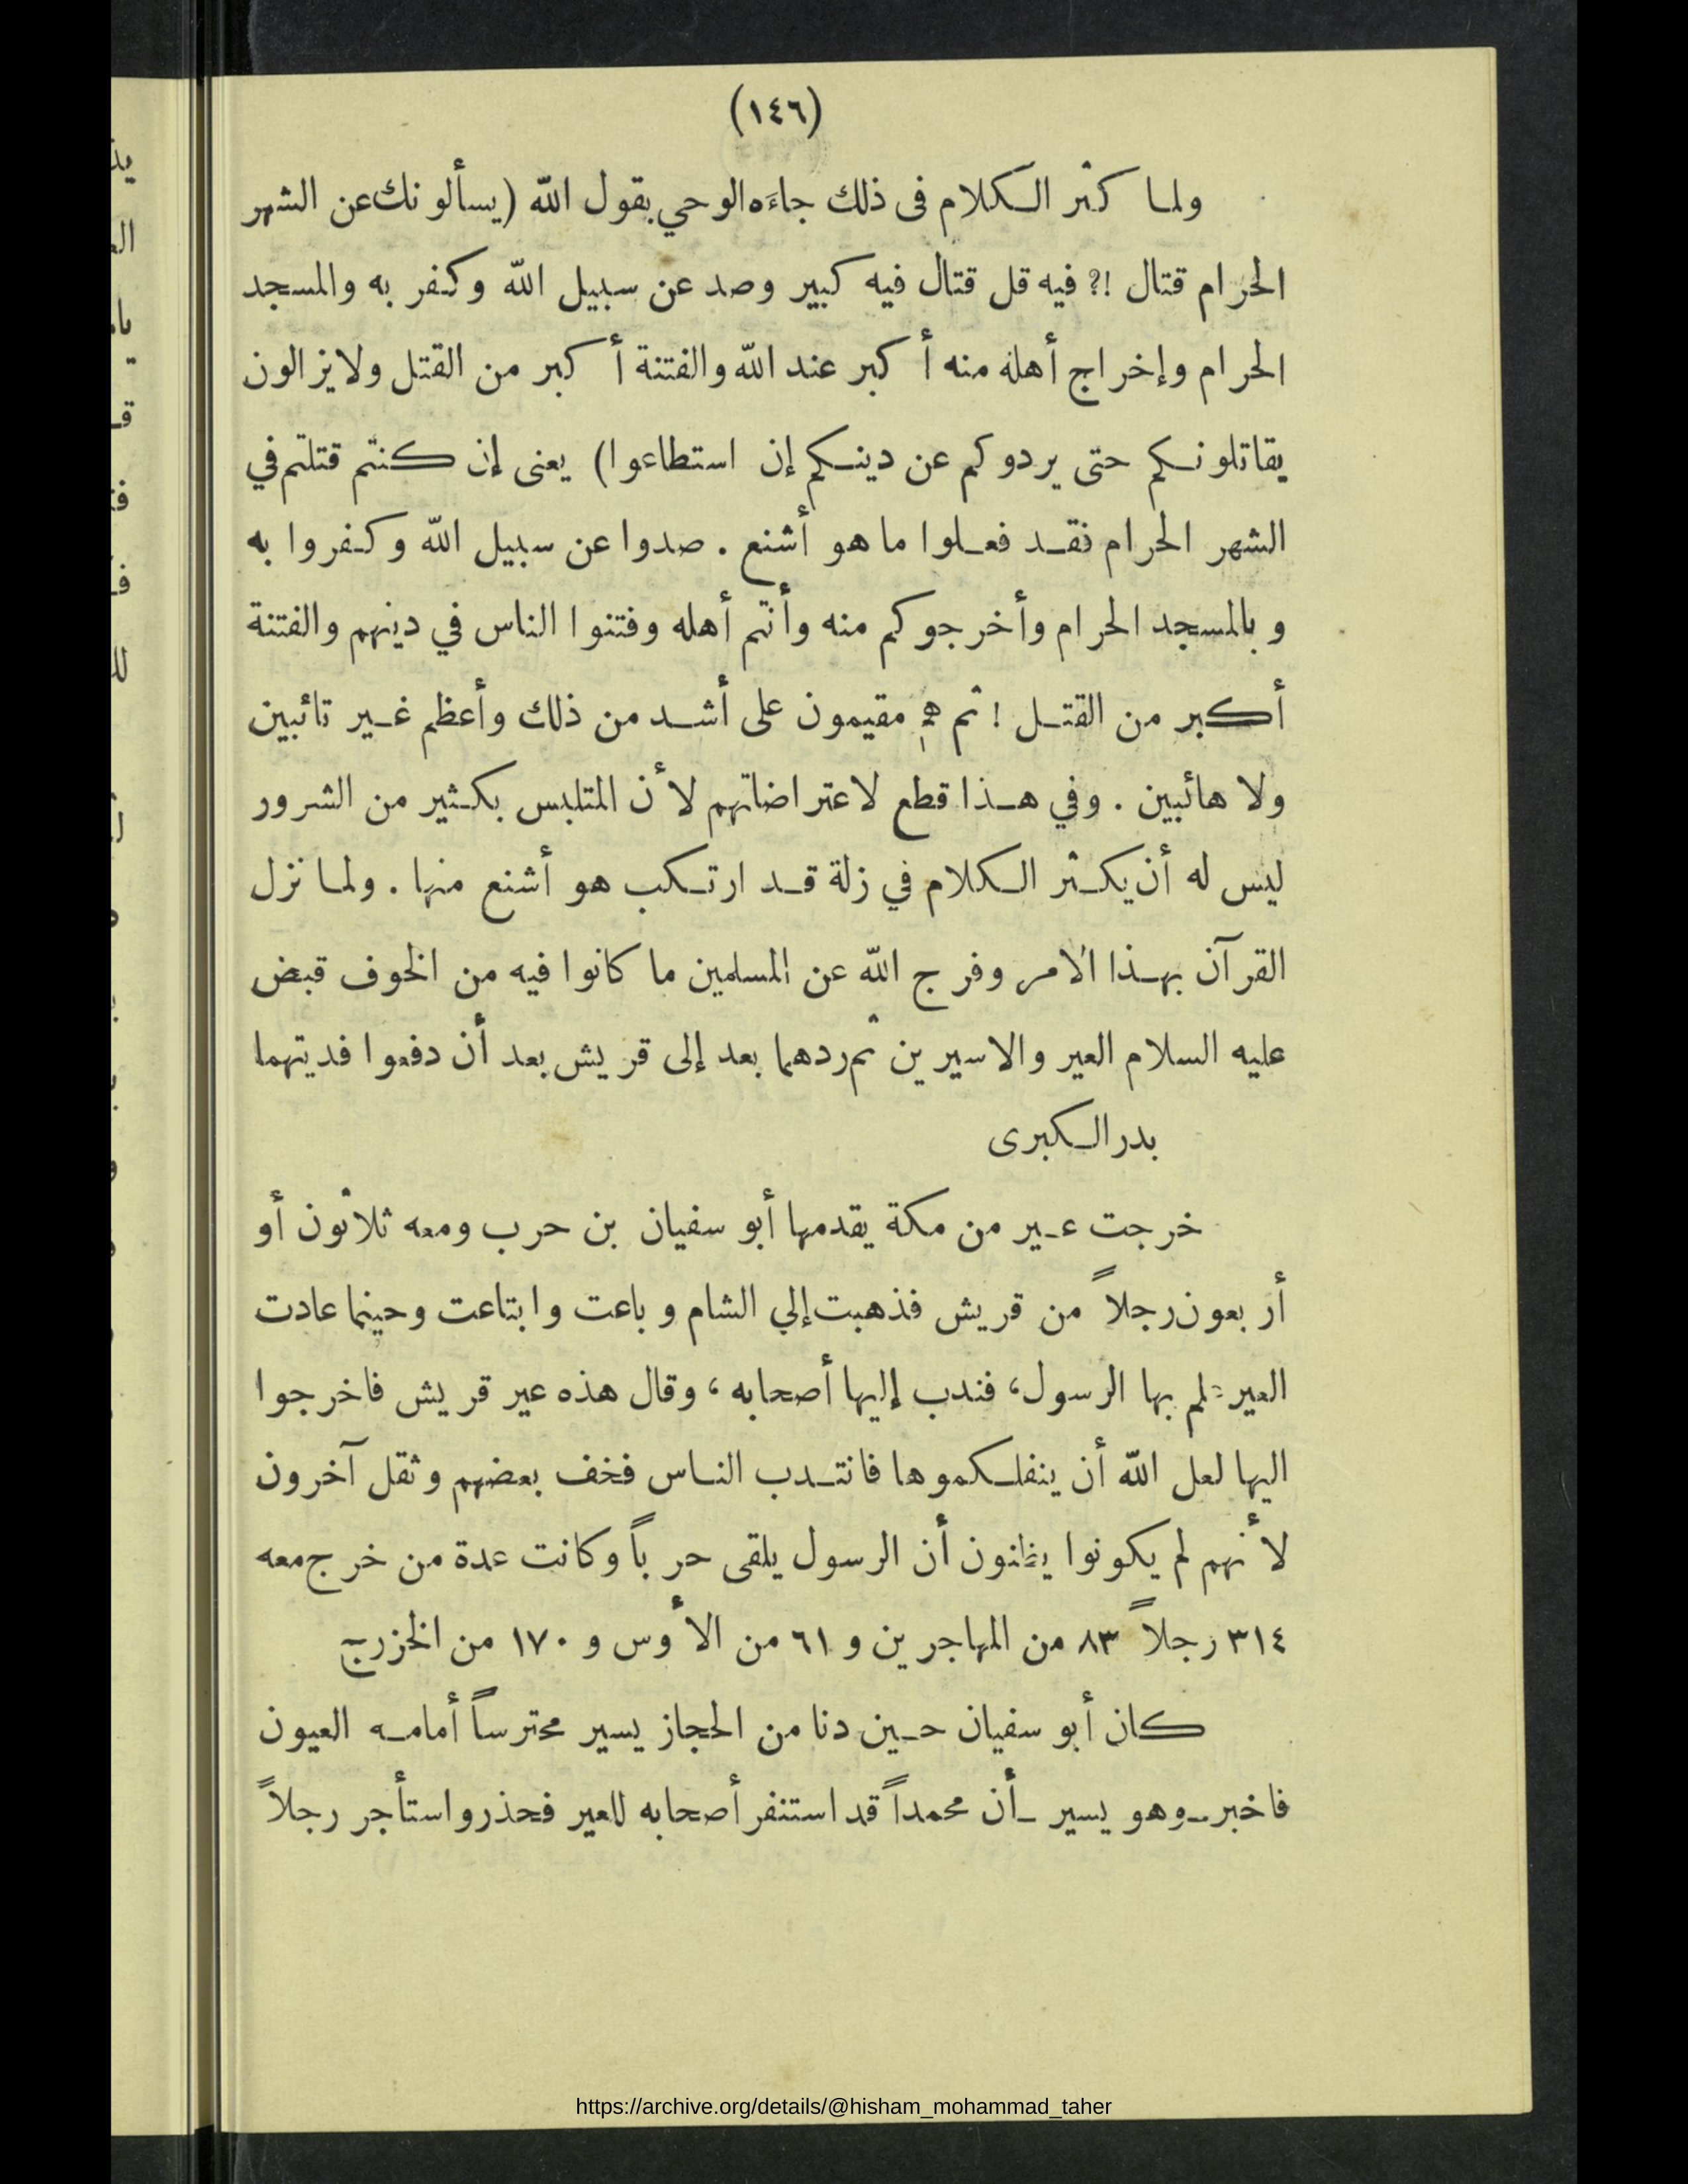 (١٤٦)
ولما كثر الكلام فى ذلك جاءه الوحي بقول الله (يسألونك عن الشهر
الحرام قتال !? فيه قل قتال فيه كبير وصد عن سبيل الله وكفر به والمسجد
الحرام وإخراج أهله منه أكبر عند الله والفتنة أكبر من القتل ولا يزالون
يقاتلونكم حتى يردوكم عن دينكم إن استطاعوا) يعنى إن كنتم قتلتم في
الشهر الحرام فقد فعلوا ما هو أشنع . صدوا عن سبيل الله وكفروا به
وبالمسجد الحرام وأخرجوكم منه وأنتم أهله وفتنوا الناس في دينهم والفتنة
أكبر من القتل ! ثم هم مقيمون على أشد من ذلك وأعظم غير تائبين
ولا هائبين . وفي هذا قطع لاعتراضاتهم لأن المتلبس بكثير من الشرور
ليس له أن يكثر الكلام في زلة قد ارتكب هو أشنع منها . ولما نزل
القرآن بهذا الامر وفرج الله عن المسلمين ما كانوا فيه من الخوف قبض
عليه السلام العير والاسيرين ثم ردهما بعد إلى قريش بعد أن دفعوا فديتهما
بدر الكبرى
خرجت عير من مكة يقدمها أبو سفيان بن حرب ومعه ثلاثون أو
أربعون رجلاً من قريش فذهبت إلي الشام وباعت وابتاعت وحينما عادت
العير علم بها الرسول، فندب إليها أصحابه ، وقال هذه عير قريش فاخرجوا
اليها لعل الله أن ينفلكموها فانتدب الناس فخف بعضهم وثقل آخرون
لأنهم لم يكونوا يظنون أن الرسول يلقى حرباً وكانت عدة من خرج معه
٣١٤ رجلاً ٨٣ من المهاجرين و ٦١ من الأوس و ١٧٠ من الخزرج
كان أبو سفيان حين دنا من الحجاز يسير محترساً أمامه العيون
فاخبر ـ وهو يسير ـ أن محمداً قد استنفر أصحابه للعير فحذر واستأجر رجلاً
https://archive.org/details/@hisham_mohammad_taher